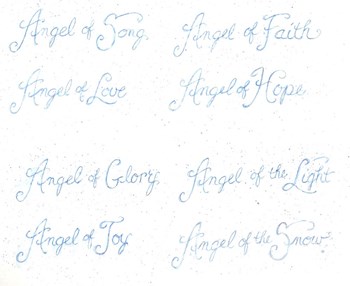 Angel of Song
Angel of Faith
Angel of Love
Angel of Hope
Angel of Glory
Angel of the Light
Angel of Joy
Angel of the Snow